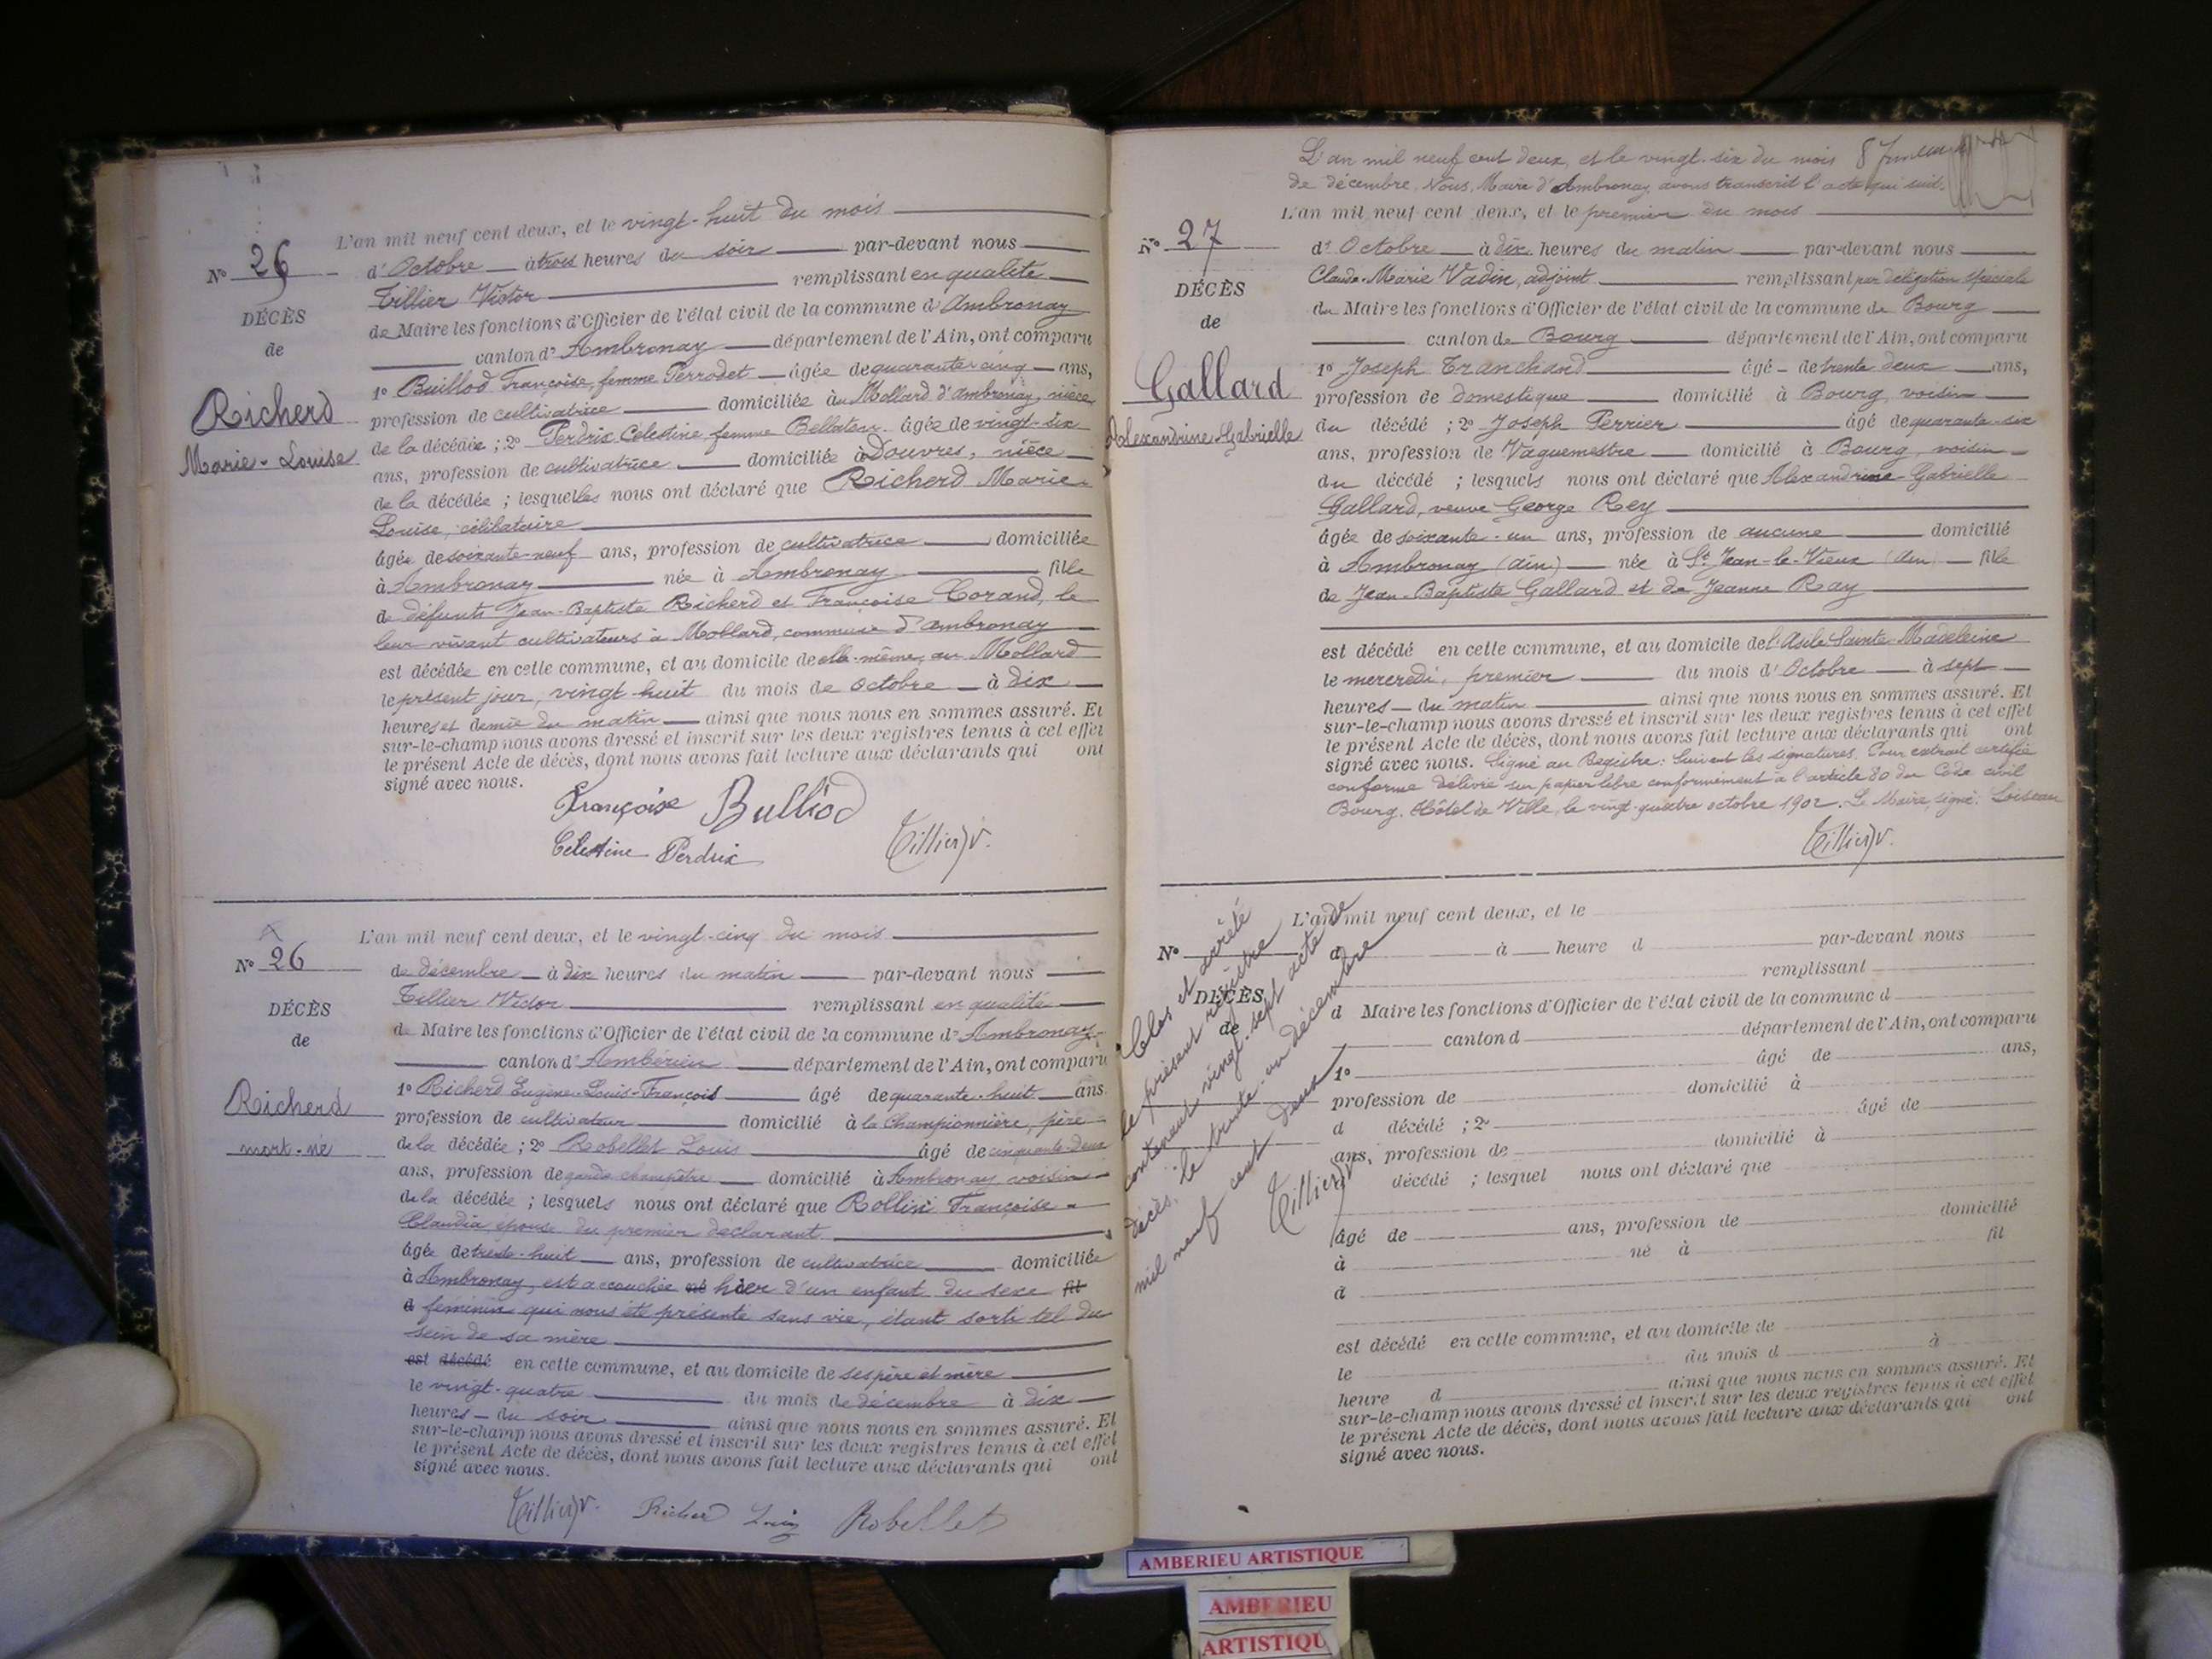 L'an mil neuf cent deux, et le vingt-huit du mois
N° 26
d'Octobre à trois heures du soir par-devant nous
Tillier Victor remplissant en qualité
DÉCÈS
de Maire les fonctions d'Officier de l'état civil de la commune d'Ambronay
de
canton d'Ambronay département de l'Ain, ont comparu
1° Buillod Françoise, femme Perrodet âgée de quarante cinq ans,
Richerd
profession de cultivatrice domiciliée au Mollard d'ambronay, nièce
Marie-Louise
de la décédée ; 2° Perdrix Celestine femme Bellaten âgée de vingt-six
ans, profession de cultivatrice domiciliée à Douvres, nièce
de la décédée ; lesquelles nous ont déclaré que Richerd Marie-
Louise, célibataire
âgée de soixante-neuf ans, profession de cultivatrice domiciliée
à Ambronay née à Ambronay fille
de défunts Jean-Baptiste Richerd et Françoise Corand, le
leur vivant cultivateurs à Mollard, commune d'ambronay
est décédée en cette commune, et au domicile de elle-même, au Mollard
le présent jour, vingt-huit du mois de octobre à dix
heures et demie du matin ainsi que nous nous en sommes assuré. Et
sur-le-champ nous avons dressé et inscrit sur les deux registres tenus à cet effet
le présent Acte de décès, dont nous avons fait lecture aux déclarants qui ont
signé avec nous.
Françoise Bulliod
Celestine Perdrix Tillier V.
L'an mil neuf cent deux, et le vingt-cinq du mois
N° 26
de décembre à dix heures du matin par-devant nous
Tillier Victor remplissant en qualité
DÉCÈS
de Maire les fonctions d'Officier de l'état civil de la commune d'Ambronay
de
canton d'Ambérieu département de l'Ain, ont comparu
1° Richerd Eugène-Louis-François âgé de quarante-huit ans
Richerd
profession de cultivateur domicilié à la Championnière, père
mort-né
de la décédée ; 2° Robellet Louis âgé de cinquante-deux
ans, profession de garde champêtre domicilié à Ambronay voisin
de la décédée ; lesquels nous ont déclaré que Rollin Françoise-
Claudia épouse du premier déclarant
âgée de trente-huit ans, profession de cultivatrice domiciliée
à Ambronay, est accouchée né hier d'un enfant du sexe fil
d féminin qui nous été présenté sans vie, étant sorti tel du
sein de sa mère
est décédé en cette commune, et au domicile de ses père et mère
le vingt-quatre du mois de décembre à dix
heures du soir ainsi que nous nous en sommes assuré. Et
sur-le-champ nous avons dressé et inscrit sur les deux registres tenus à cet effet
le présent Acte de décès, dont nous avons fait lecture aux déclarants qui ont
signé avec nous.
Tillier V. Richerd Louis Robellet
L'an mil neuf cent deux, et le vingt-six du mois
de décembre, Nous, Maire d'Ambronay, avons transcrit l'acte qui suit.
L'an mil neuf cent deux, et le premier du mois
N° 27
d'Octobre à dix heures du matin par-devant nous
Claude-Marie Vadin, adjoint remplissant par délégation spéciale
DÉCÈS
du Maire les fonctions d'Officier de l'état civil de la commune de Bourg
de
canton de Bourg département de l'Ain, ont comparu
1° Joseph Tranchand âgé de trente deux ans,
Gallard
profession de domestique domicilié à Bourg, voisin
Alexandrine-Gabrielle
du décédé ; 2° Joseph Perrier âgé de quarante-six
ans, profession de Vaguemestre domicilié à Bourg, voisin
du décédé ; lesquels nous ont déclaré que Alexandrine-Gabrielle
Gallard, veuve George Rey
âgée de soixante-un ans, profession de aucune domicilié
à Ambronay (ain) née à St Jean-le-Vieux (Ain) fille
de Jean-Baptiste Gallard et de Jeanne Ray
est décédé en cette commune, et au domicile de l'Asile Sainte-Madeleine
le mercredi, premier du mois d'Octobre à sept
heures du matin ainsi que nous nous en sommes assuré. Et
sur-le-champ nous avons dressé et inscrit sur les deux registres tenus à cet effet
le présent Acte de décès, dont nous avons fait lecture aux déclarants qui ont
signé avec nous. Signé au Registre : Suivent les signatures. Pour extrait certifié
conforme délivré sur papier libre conformément à l'article 80 du Code civil
Bourg, Hôtel de Ville, le vingt-quatre octobre 1902. Le Maire, signé : Loiseau
Tillier V.
Clos et arrêté
le présent registre
contenant vingt-sept acte de
décès, le trente-un décembre
mil neuf cent deux
Tillier V.
L'an mil neuf cent deux, et le
N°
d à heure d par-devant nous
remplissant
DÉCÈS
d Maire les fonctions d'Officier de l'état civil de la commune d
de
canton d département de l'Ain, ont comparu
1° âgé de ans,
profession de domicilié à
d décédé ; 2° âgé de
ans, profession de domicilié à
décédé ; lesquel nous ont déclaré que
âgé de ans, profession de domicilié
à né à fil
d
est décédé en cette commune, et au domicile de
le du mois d à
heure d ainsi que nous nous en sommes assuré. Et
sur-le-champ nous avons dressé et inscrit sur les deux registres tenus à cet effet
le présent Acte de décès, dont nous avons fait lecture aux déclarants qui ont
signé avec nous.
AMBERIEU ARTISTIQUE
AMBERIEU
ARTISTIQU